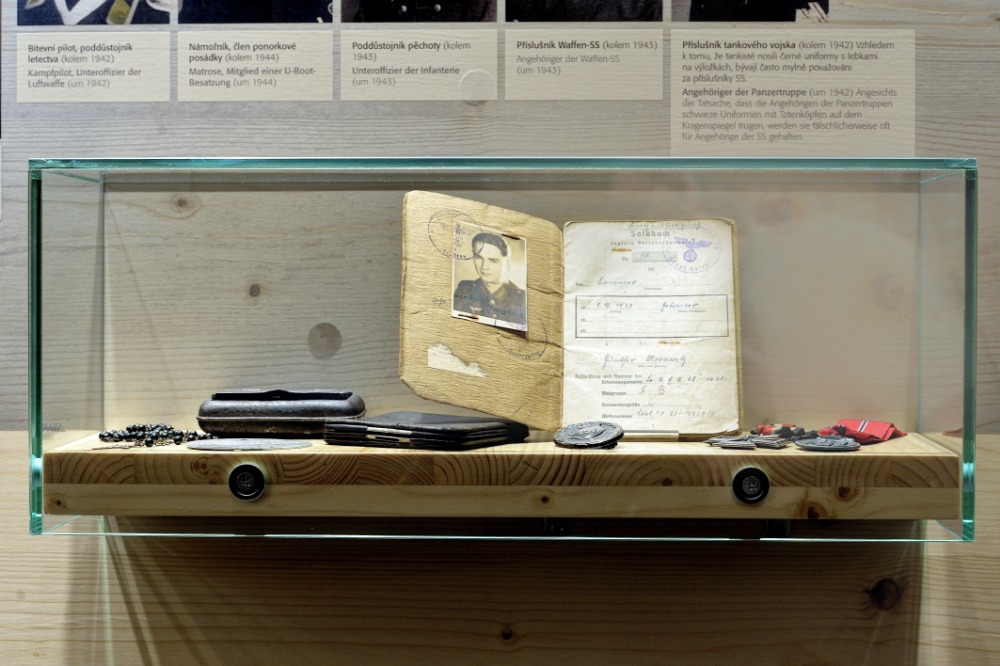 Bitevní pilot, poddůstojník
letectva (kolem 1942)
Kampfpilot, Unteroffizier der
Luftwaffe (um 1942)
Námořník, člen ponorkové
posádky (kolem 1944)
Matrose, Mitglied einer U-Boot-
Besatzung (um 1944)
Poddůstojník pěchoty (kolem
1943)
Unteroffizier der Infanterie
(um 1943)
Příslušník Waffen-SS (kolem 1943)
Angehöriger der Waffen-SS
(um 1943)
Příslušník tankového vojska (kolem 1942) Vzhledem
k tomu, že tankisté nosili černé uniformy s lebkami
na výložkách, bývají často mylně považováni
za příslušníky SS.
Angehöriger der Panzertruppe (um 1942) Angesichts
der Tatsache, dass die Angehörigen der Panzertruppen
schwarze Uniformen mit Totenköpfen auf dem
Kragenspiegel trugen, werden sie fälschlicherweise oft
für Angehörige der SS gehalten.
Soldbuch
zugleich Personalausweis
Nr.
Beschriftung und Nummer der
Erkennungsmarke
Blutgruppe B
Gasmaskengröße
Wehrnummer